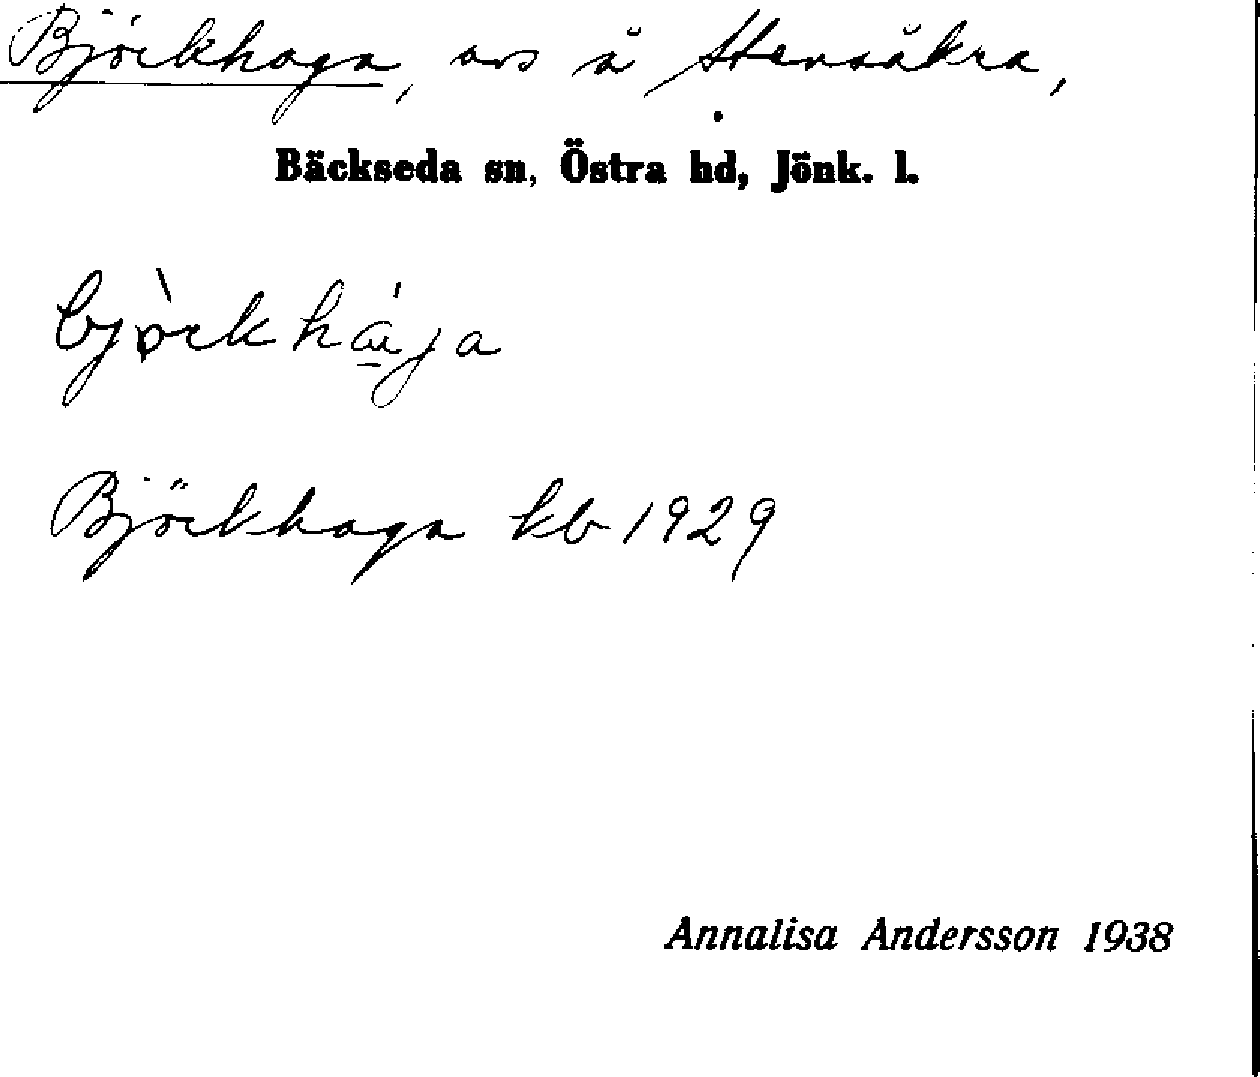 Björkhaga, avs å Stensåkra,
Bäckseda sn, Östra hd, Jönk. l.
bjò̩rkhá̱ja
Björkhaga kb 1929
Annalisa Andersson 1938